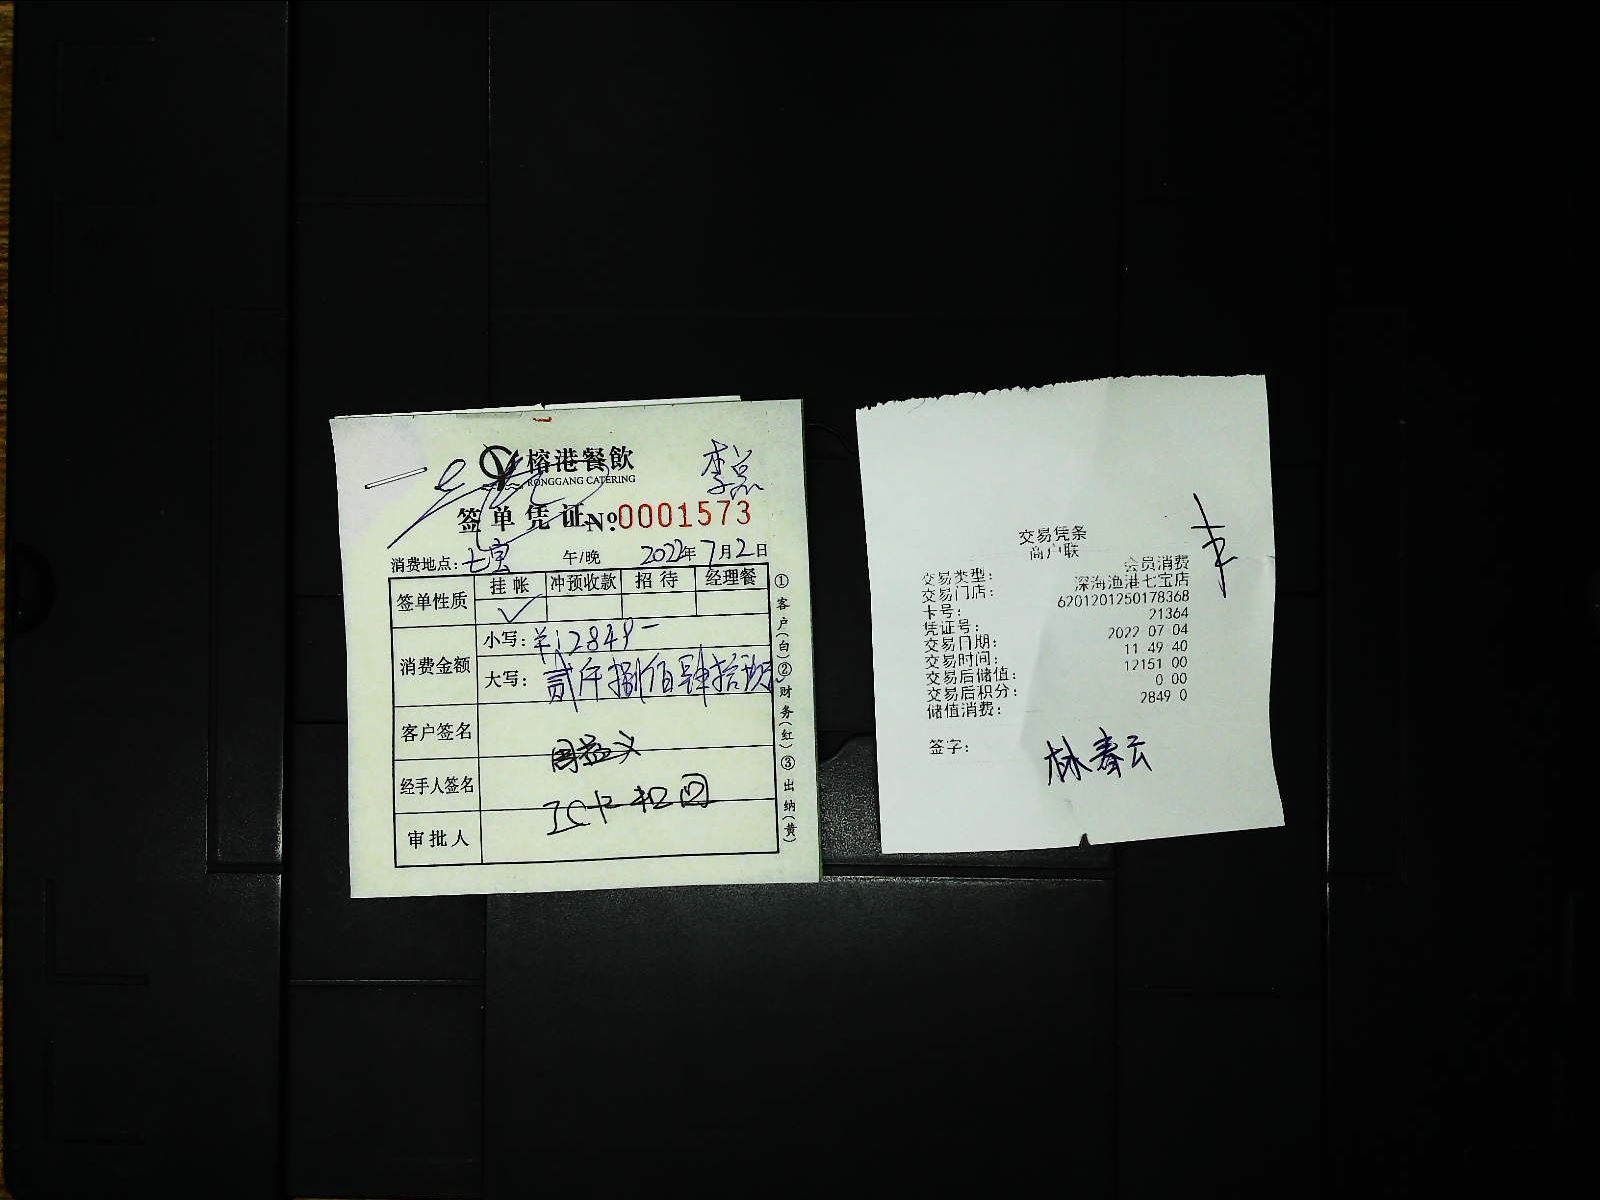 榕港餐飲
RONGGANG CATERING
李总
签单凭证 No:0001573
消费地点：七宝 午/晚 2022年7月2日
签单性质 挂帐 冲预收款 招待 经理餐
✓
消费金额 小写：¥：2849－
大写：贰仟捌佰肆拾玖
客户签名
周益义
经手人签名
IC卡扣回
审批人
①客户(白)②财务(红)③出纳(黄)
交易凭条
商户联
交易类型： 会员消费
交易门店： 深海渔港七宝店
卡号： 6201201250178368
凭证号： 21364
交易日期： 2022 07 04
交易时间： 11 49 40
交易后储值： 12151 00
交易后积分： 0 00
储值消费： 2849 0
签字： 林春云